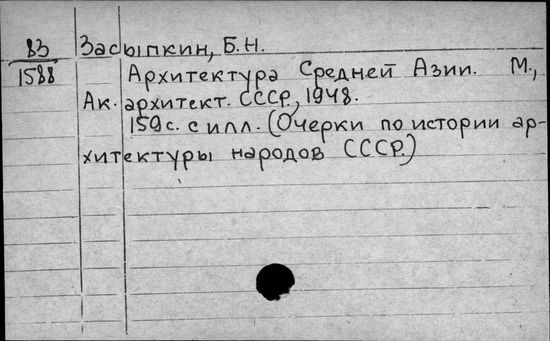 83 Засыпкин, Б.Н.
1588 Архитектура Средней Азии. М.,
Ак. архитект. СССР, 1948.
159с. с илл. (Очерки по истории ар-
хитектуры народов СССР.)